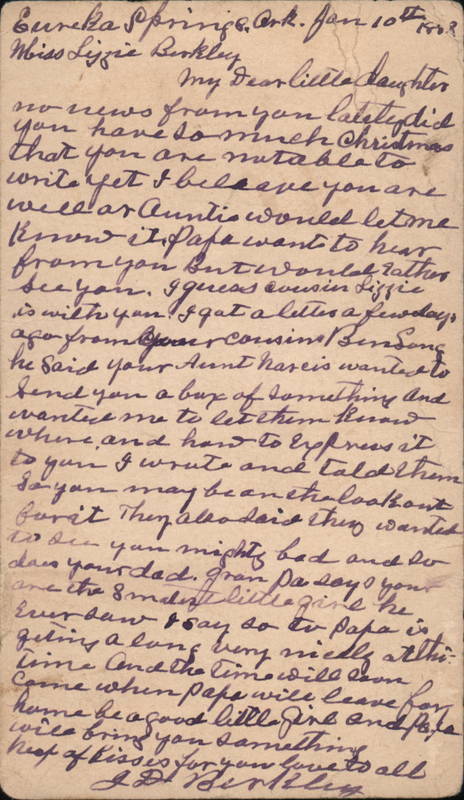 Eureka Springs, Ark. Jan 10th
Miss Lizzie Berkley
My Dear little daughter
no news from you lately did
you have so much Christmas
that you are not able to
write yet I beleave you are
well or Auntie would let me
Know it. Papa wants to hear
from you But would rather
see you. I guess cousin Lizzie
is with you. I got a letter a few days
ago from your cousins Ben Song
he said your Aunt Narcis wanted to
send you a box of something and
wanted me to let them Know
where and how to Express it
to you I wrote and told them
So you may be on the lookout
for it They also said they wanted
to see you mighty bad and so
does your dad. Gran Pa says your
are the Smartest little girl he
Ever saw I say so to Papa is
geting along very nicely at thi
time And the time will soon
come when Papa will leave for
home be a good little girl and Papa
will bring you something
heap of Kisses for you love to all
J D Berkley